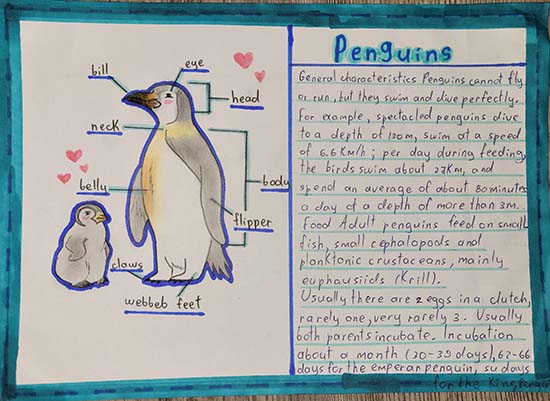 bill
eye
head
neck
body
belly
flipper
claws
webbeb feet
Penguins
General characteristics Penguins cannot fly
or run, but they swim and dive perfectly.
For example, spectacled penguins dive
to a depth of 130m, swim at a speed
of 6.6 Km/h; per day during feeding,
the birds swim about 27Km, and
spend an average of about 80 minutes
a day of a depth of more than 3m.
Food Adult penguins feed on small
fish, small cephalopods and
planktonic crustaceans, mainly
euphausiids (Krill).
Usually there are 2 eggs in a clutch,
rarely one, very rarely 3. Usually
both parents incubate. Incubation
about a month (30-39 days), 62-66
days for the emperar penguin, 54 days
for the King Penguin